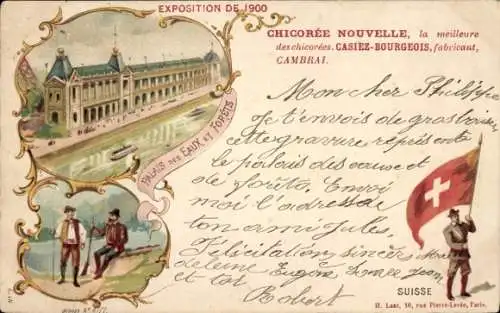 EXPOSITION DE 1900
CHICORÉE NOUVELLE, la meilleure
des chicorées. CASIEZ-BOURGEOIS, fabricant,
CAMBRAI.
PALAIS DES EAUX ET FORÊTS
Mon cher Philippe
Je t'envois de gros
cette gravure représente
le palais des eaux et
de forêts. Envoi
moi l'adresse de
ton ami Jules.
Félicitation sincère
Eugène, Jean
et tot
Robert
SUISSE
H. Laas, 10, rue Pierre-Levée, Paris.